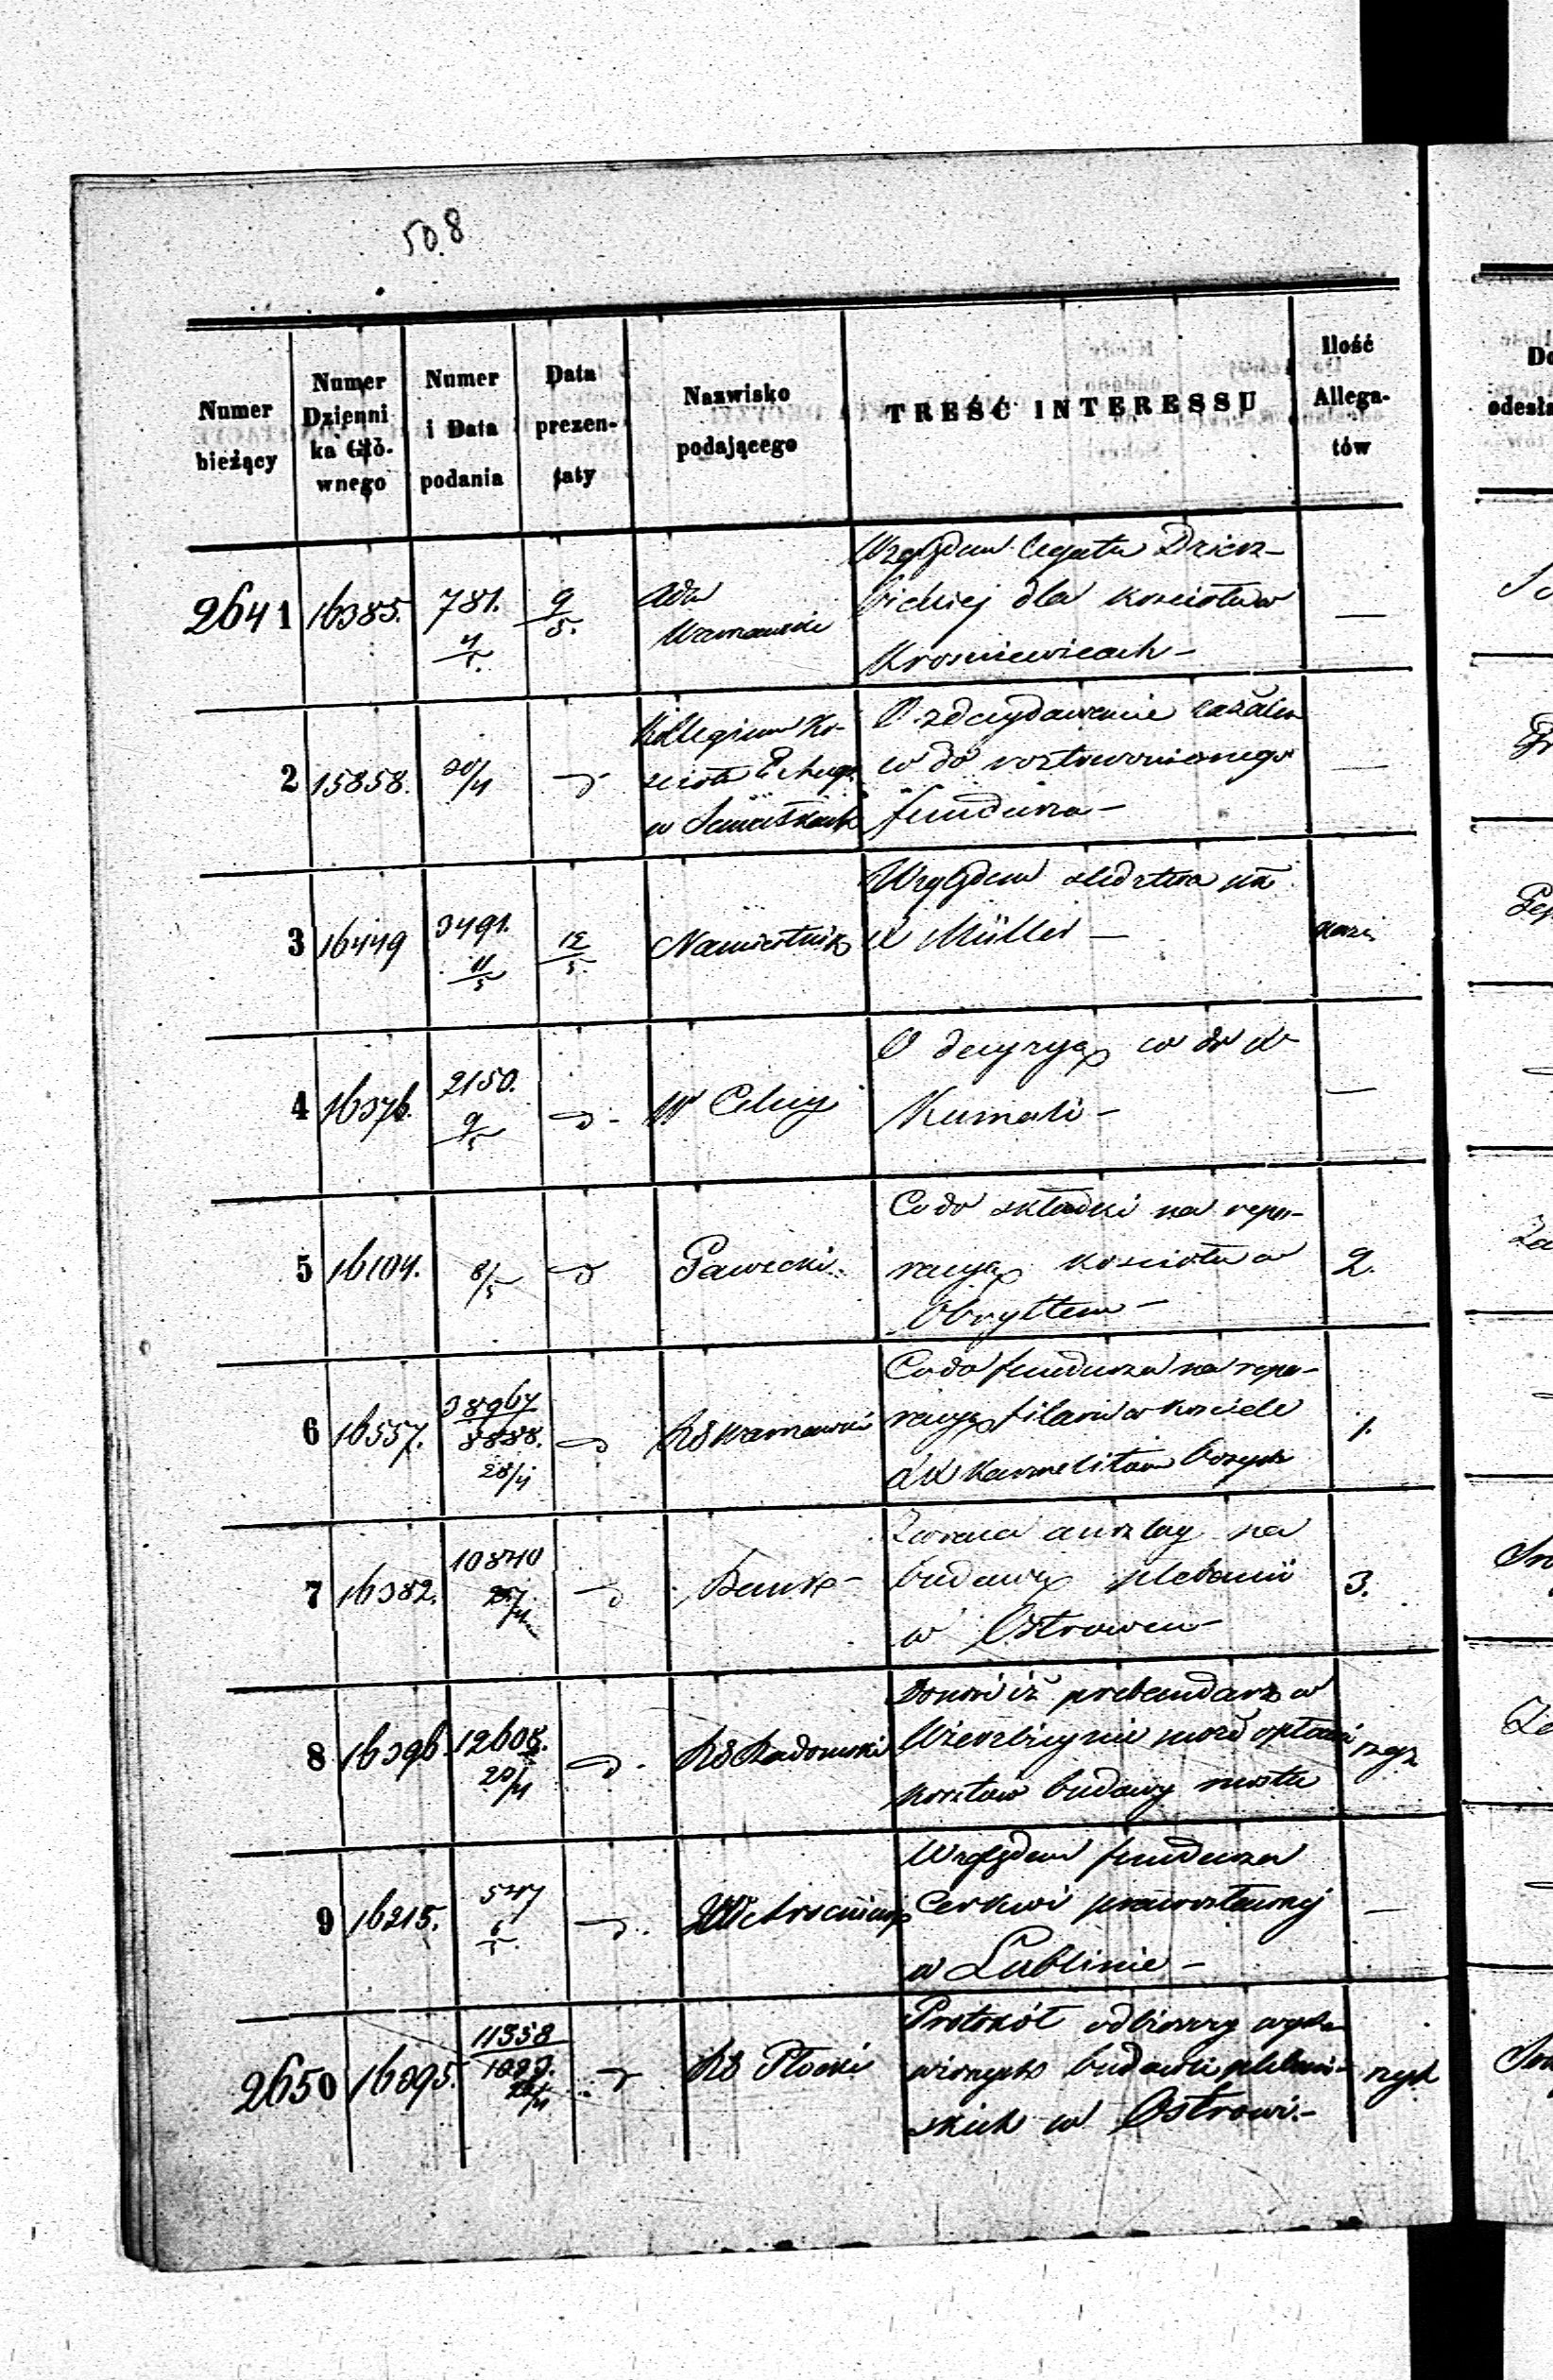 508
Numer bieżący
Numer Dzienni ka Głó- wnego
Numer i Data podania
Data prezen- taty
Nazwisko podającego
TREŚĆ INTERESSU
Ilość Allega- tów
2641 16385. 781. 4/5. 9/5. Adw
Warszawski
Względem legatu
dla kościoła w
Krośniewicach —
2 15858. 20/4 d
Kollegium Ko-
ścioła
w Suwałkach
O zdecydowanie
co do roztrwonionego
funduszu —
3 16449 3491. 11/5 12/5. Namiestnik
Względem śledztwa
X Müller —
4 16376. 2150. 9/5 d.
O decyzyę co do X
Kumali —
5 16104. 8/5 d Pawecki.
Co do składki na repe-
racyę kościoła w
Obryttem — 2.
6 16557. 38967/8888. 28/4 d RG Warszawski
Co do funduszu na repe-
racyę filarów w kościele
XX Karmelitów bosych 1.
7 16382. 10840 d Bank —
Zwraca anszlag na
budowę plebanii
w Ostrowcu — 3.
8 16396. 12608. 20/4 d. RG Radomski
Donosi iż prebendarz w
Wierzbicy nie może opłacić
kosztów budowy mostu
9 16215. 547 6/5. d.
Względem funduszu
Cerkwi prawosławnej
w Lublinie —
2650 16395. 11358 d RG Płocki
Protokół odbiorczy
budowli plebań-
skich w Ostrowi. —